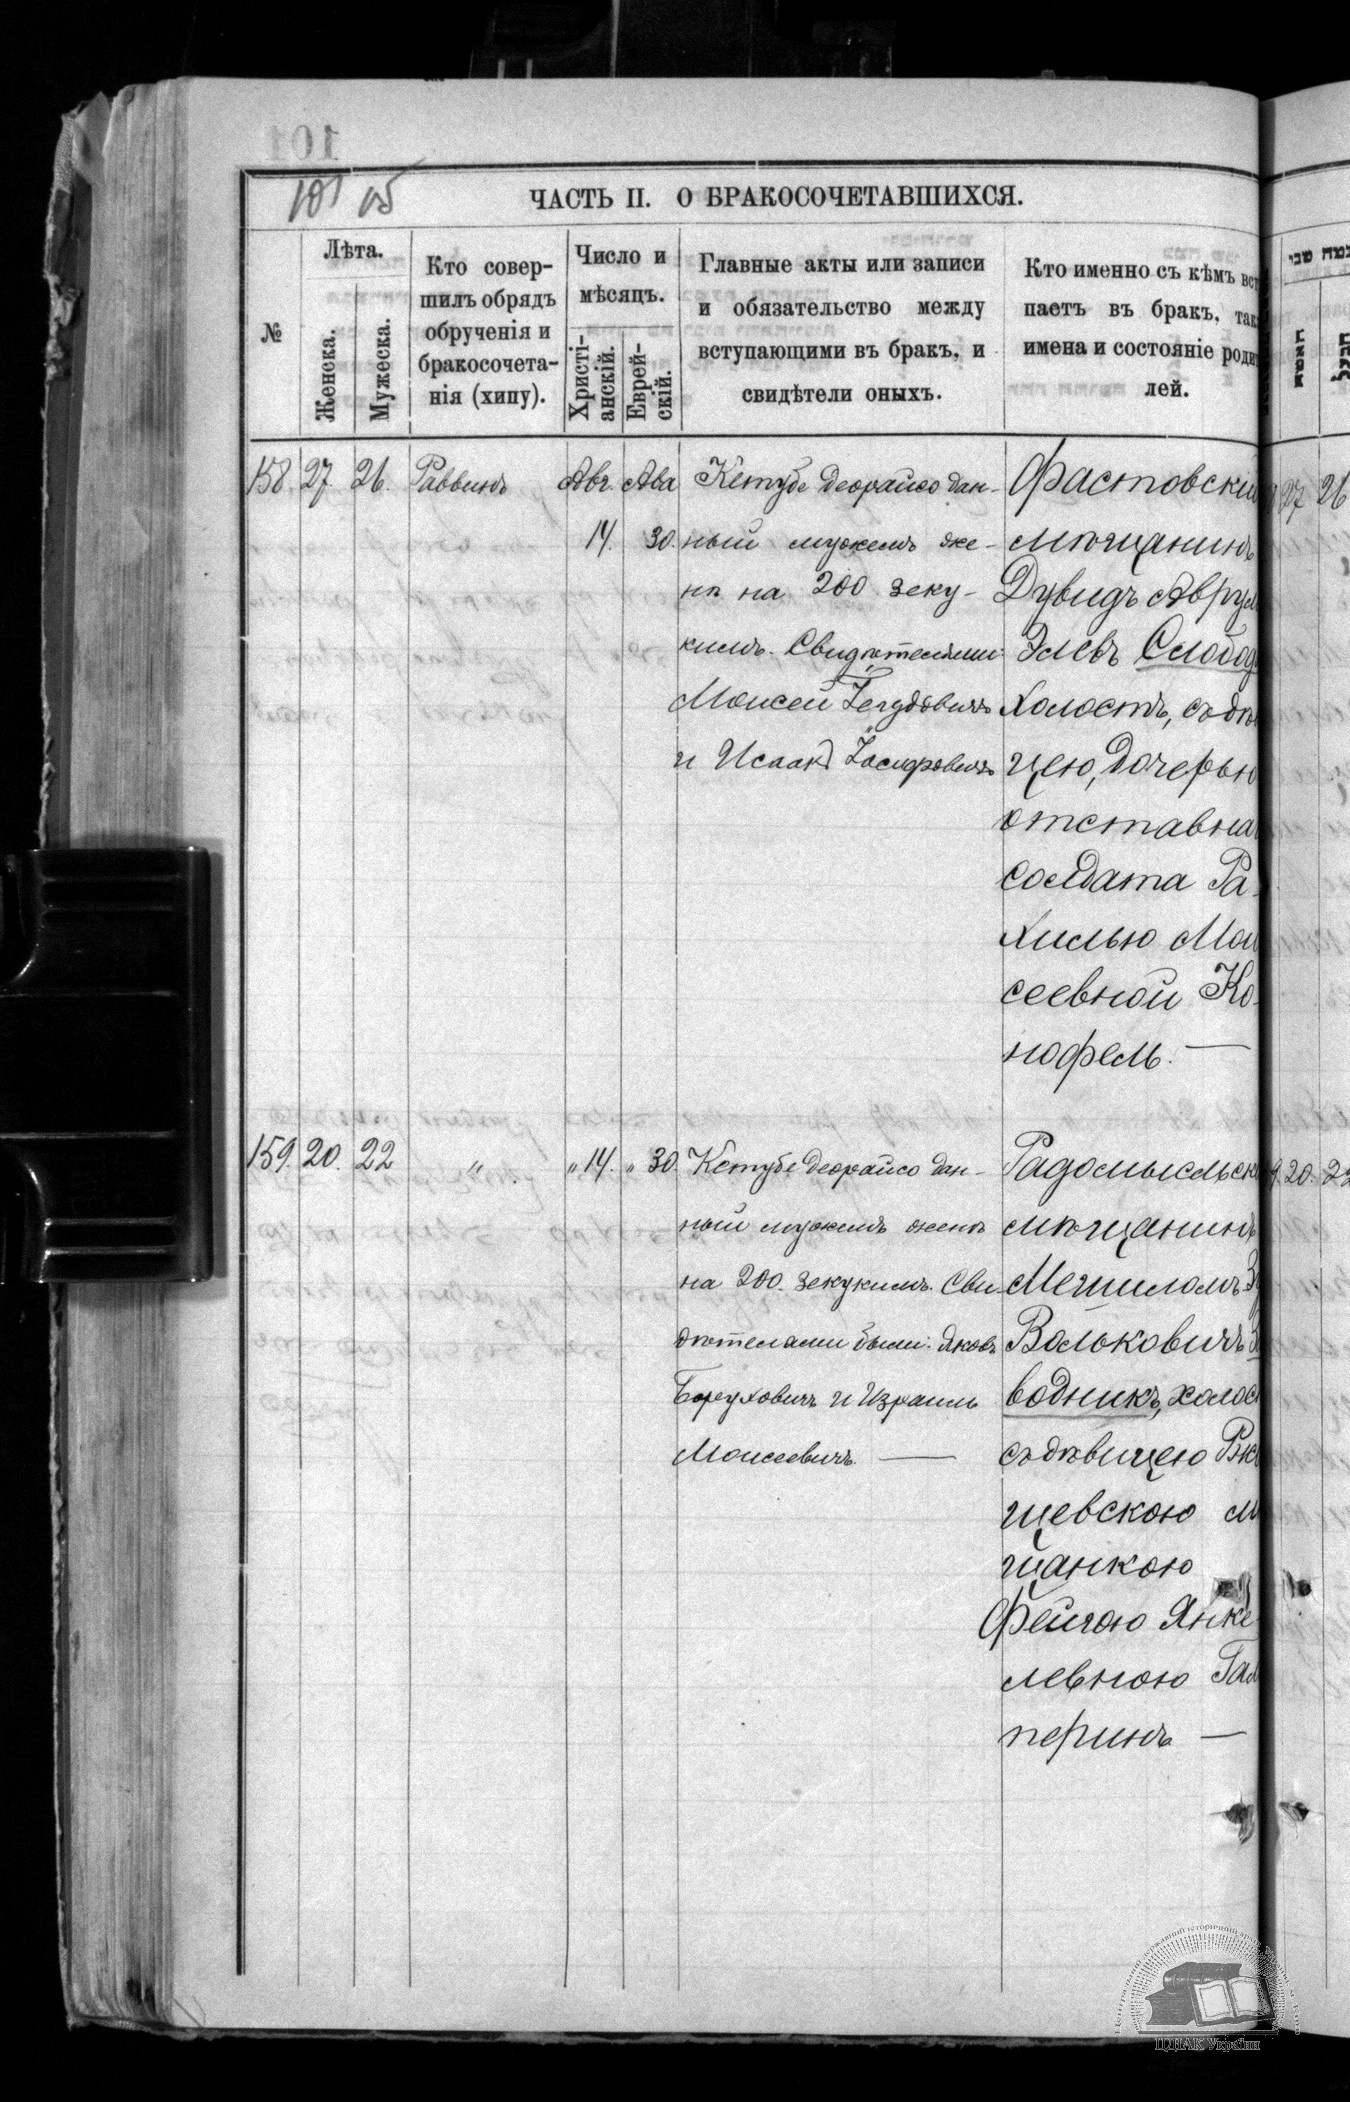 101
ЧАСТЬ II. О БРАКОСОЧЕТАВШИХСЯ.
№
Лѣта.
Женска.
Мужеска.
Кто совер-
шилъ обрядъ
обрученія и
бракосочета-
нія (хипу).
Число и
мѣсяцъ.
Христі-
анскій.
Еврей-
скій.
Главные акты или записи
и обязательство между
вступающими въ бракъ, и
свидѣтели оныхъ.
Кто именно съ кѣмъ вст
паетъ въ бракъ, так
имена и состояніе роди
лей.
158. 27 26. Раввинъ Авг. Ава
14. 30.
Кетубе деорайсо дан-
ный мужемъ же-
нѣ на 200 зеку-
кимъ. Свидѣтелями:
Моисей Іегудовичъ
и Исаакъ Іосифовичъ
Фастовскій
мѣщанинъ
Дувидъ Аврум
Элевъ Слобод
холостъ, съ дѣв
цею, дочерью
отставна
солдата Ра-
хилью Мои
сеевной Ко-
нофель. —
159. 20. 22 " " 14. " 30.
Кетубе деорайсо дан-
ный мужемъ женѣ
на 200. зекукимъ. Сви-
дѣтелами были: Яковъ
Боруховичъ и Израиль
Моисеевичъ. —
Радомысльск
мѣщанинъ
Мешиломъ-З
Вольковичъ З
водникъ, холос
съ дѣвицею Рж
щевскою м
щанкою
Фейгою Янке-
левною Гал
перинъ —
27 26
9. 20. 22
ЦДІАК України